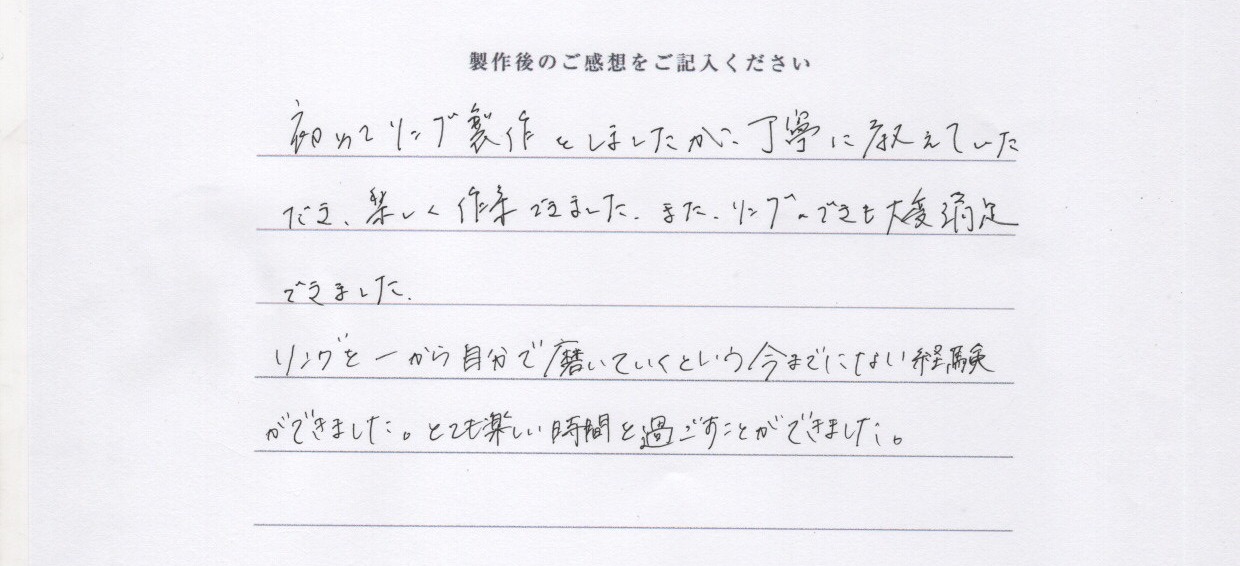 製作後のご感想をご記入ください
初めてリング製作をしましたが、丁寧に教えていた
だき、楽しく作業できました。また、リングのできも大変満足
できました。
リングを一から自分で磨いていくという今までにない経験
ができました。とても楽しい時間を過ごすことができました。